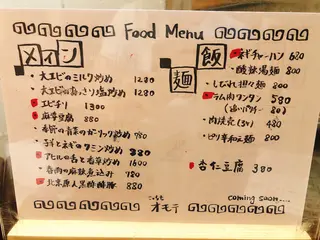 Food Menu
メイン
・大エビのミルク炒め 1280
・大エビのあっさり塩炒め 1280
エビチリ 1300
麻婆豆腐 880
・季節の青菜のガーリック炒め 780
・子羊とネギのクミン炒め 880
アヒルの舌と香草炒め 1600
・香肉の麻辣煮込み 780
北京原人黒酢酢豚 880
飯
麺
ネギチャーハン 680
・酸辣湯麺 800
・しびれ担々麺 800
ラム肉ワンタン 580
(追いパクチー 80)
・肉焼売(3ヶ) 480
・ピリ辛和え麺 800
杏仁豆腐 380
coming soon....
オモテ